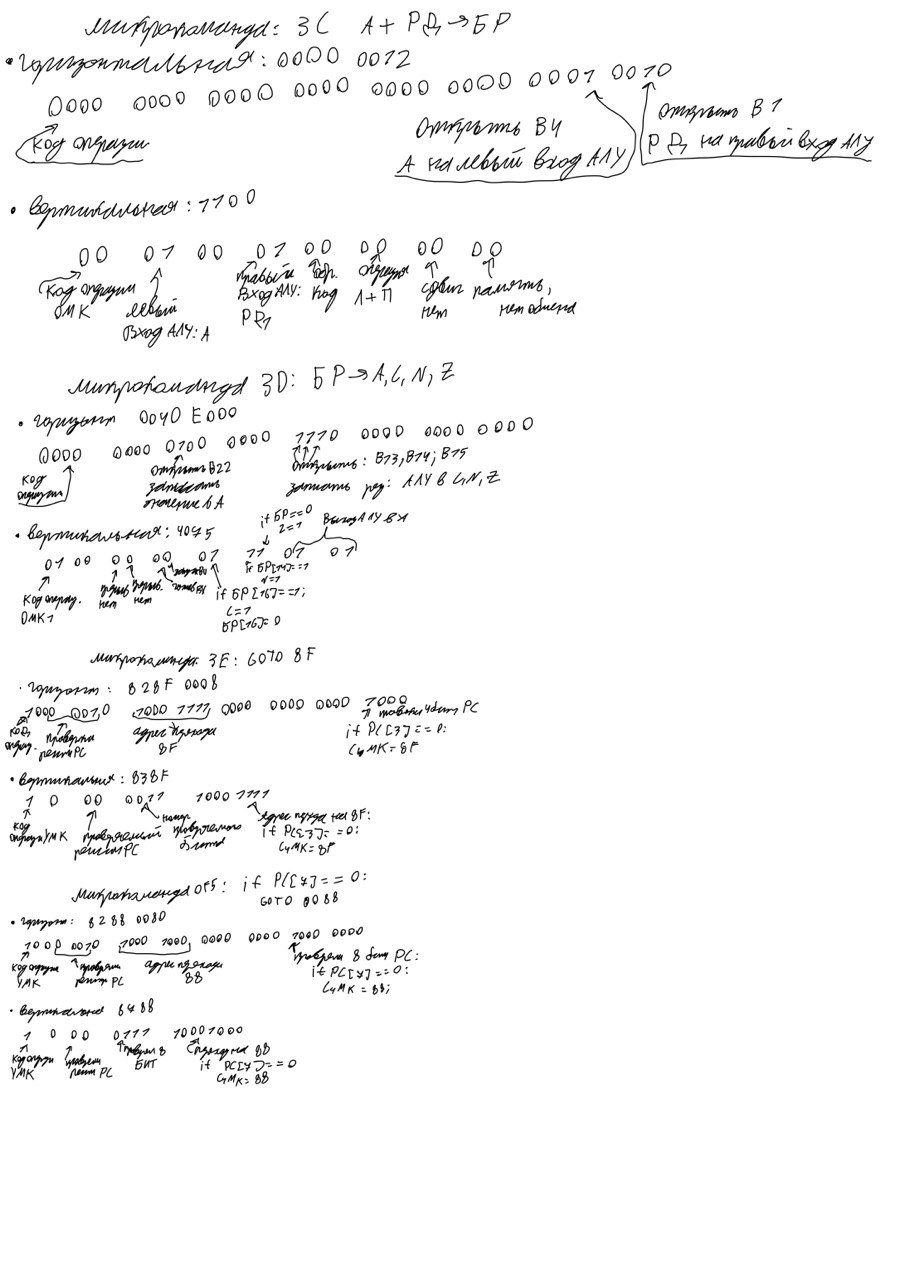 микрокоманда: 3C A + РД → БР
• горизонтальная: 0000 0012
0000 0000 0000 0000 0000 0000 0001 0010
код операции
Открыть В4
А на левый вход АЛУ
Открыть В1
РД на правый вход АЛУ
• вертикальная: 1100
00 01 00 01 00 00 00 00
Код операции
ОМК
левый
Вход АЛУ: А
правый
Вход АЛУ:
РД
обр.
код
операция
Л+П
сдвиг
нет
память,
нет обмена
микрокоманда 3D: БР → A, C, N, Z
• горизонт 0040 E000
0000 0000 0100 0000 1110 0000 0000 0000
код
операции
Открыть В22
записать
значение в А
Открыть: В13, В14; В15
записать рез: АЛУ в C, N, Z
• вертикальная: 4075
if БР==0
Z=1
Выход АЛУ в А
01 00 00 00 01 11 01 01
Код операц.
ОМК1
нет
нет
if БР[16]==1;
C=1
БР[16]=0
микрокоманда: 3E: GOTO 8F
• горизонт: 828F 0008
1000 0010 1000 1111 0000 0000 0000 1000
код
операц.
проверка
регистр РС
адрес перехода
8F
if РС[3]==0:
СчМК=8F
• вертикальная: 838F
1 0 00 0011 1000 1111
код
операции УМК
проверяемый
регистр РС
номер
проверяемого
бита
Адрес перехода на 8F:
if РС[3]==0:
СчМК=8F
Микрокоманда OF5: if РС[7]==0:
GOTO 0088
• горизонт: 8288 0080
1000 0010 1000 1000 0000 0000 1000 0000
код операции
УМК
проверяем
регистр РС
адрес перехода
88
проверяем 8 бит РС:
if РС[7]==0:
СчМК=88;
• вертикальная 8788
1 0 00 0111 10001000
код операции
УМК
проверяем
регистр РС
проверяем 8
БИТ
переход на 88
if РС[7]==0
СчМК=88